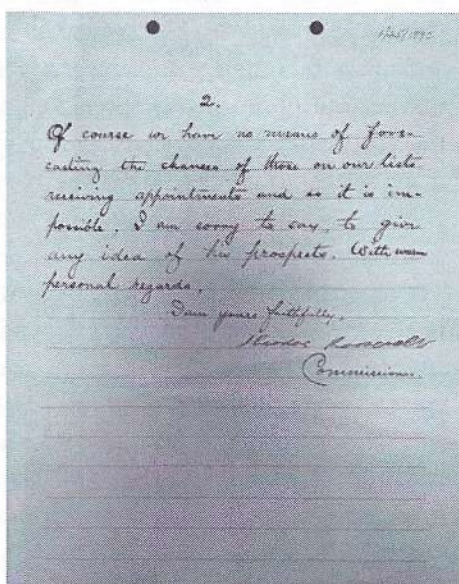 2.
Of course we have no means of fore-
casting the chances of those on our lists
receiving appointments and so it is im-
possible, I am sorry to say, to give
any idea of his prospects. With warm
personal regards,
I am yours faithfully,
Theodore Roosevelt
Commissioner.